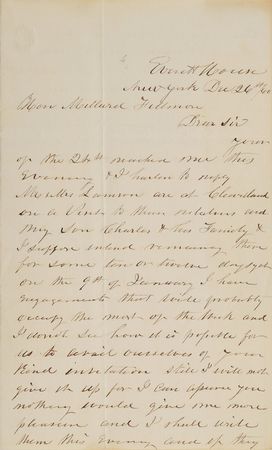 Everett House
New York Dec 26th 60
Hon Millard Fillmore
Dear Sir
Yours
of the 24th reached me this
Evening & I hasten to reply
Mr & Mrs Lamson are at Cleveland
on a Visit to their relations and
my Son Charles & his Family &
I suppose intend remaining there
for some ten or twelve days yet
on the 9th of January I have
Engagements that will probably
occupy the most of the Week and
I do not see how it is possible for
us to avail ourselves of your
Kind invitation still I will not
give it up for I can assure you
nothing would give me more
pleasure and I shall write
them this Evening and if they